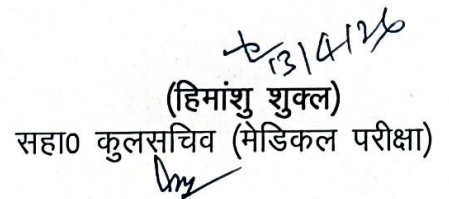 13/4/26
(हिमांशु शुक्ल)
सहा० कुलसचिव (मेडिकल परीक्षा)